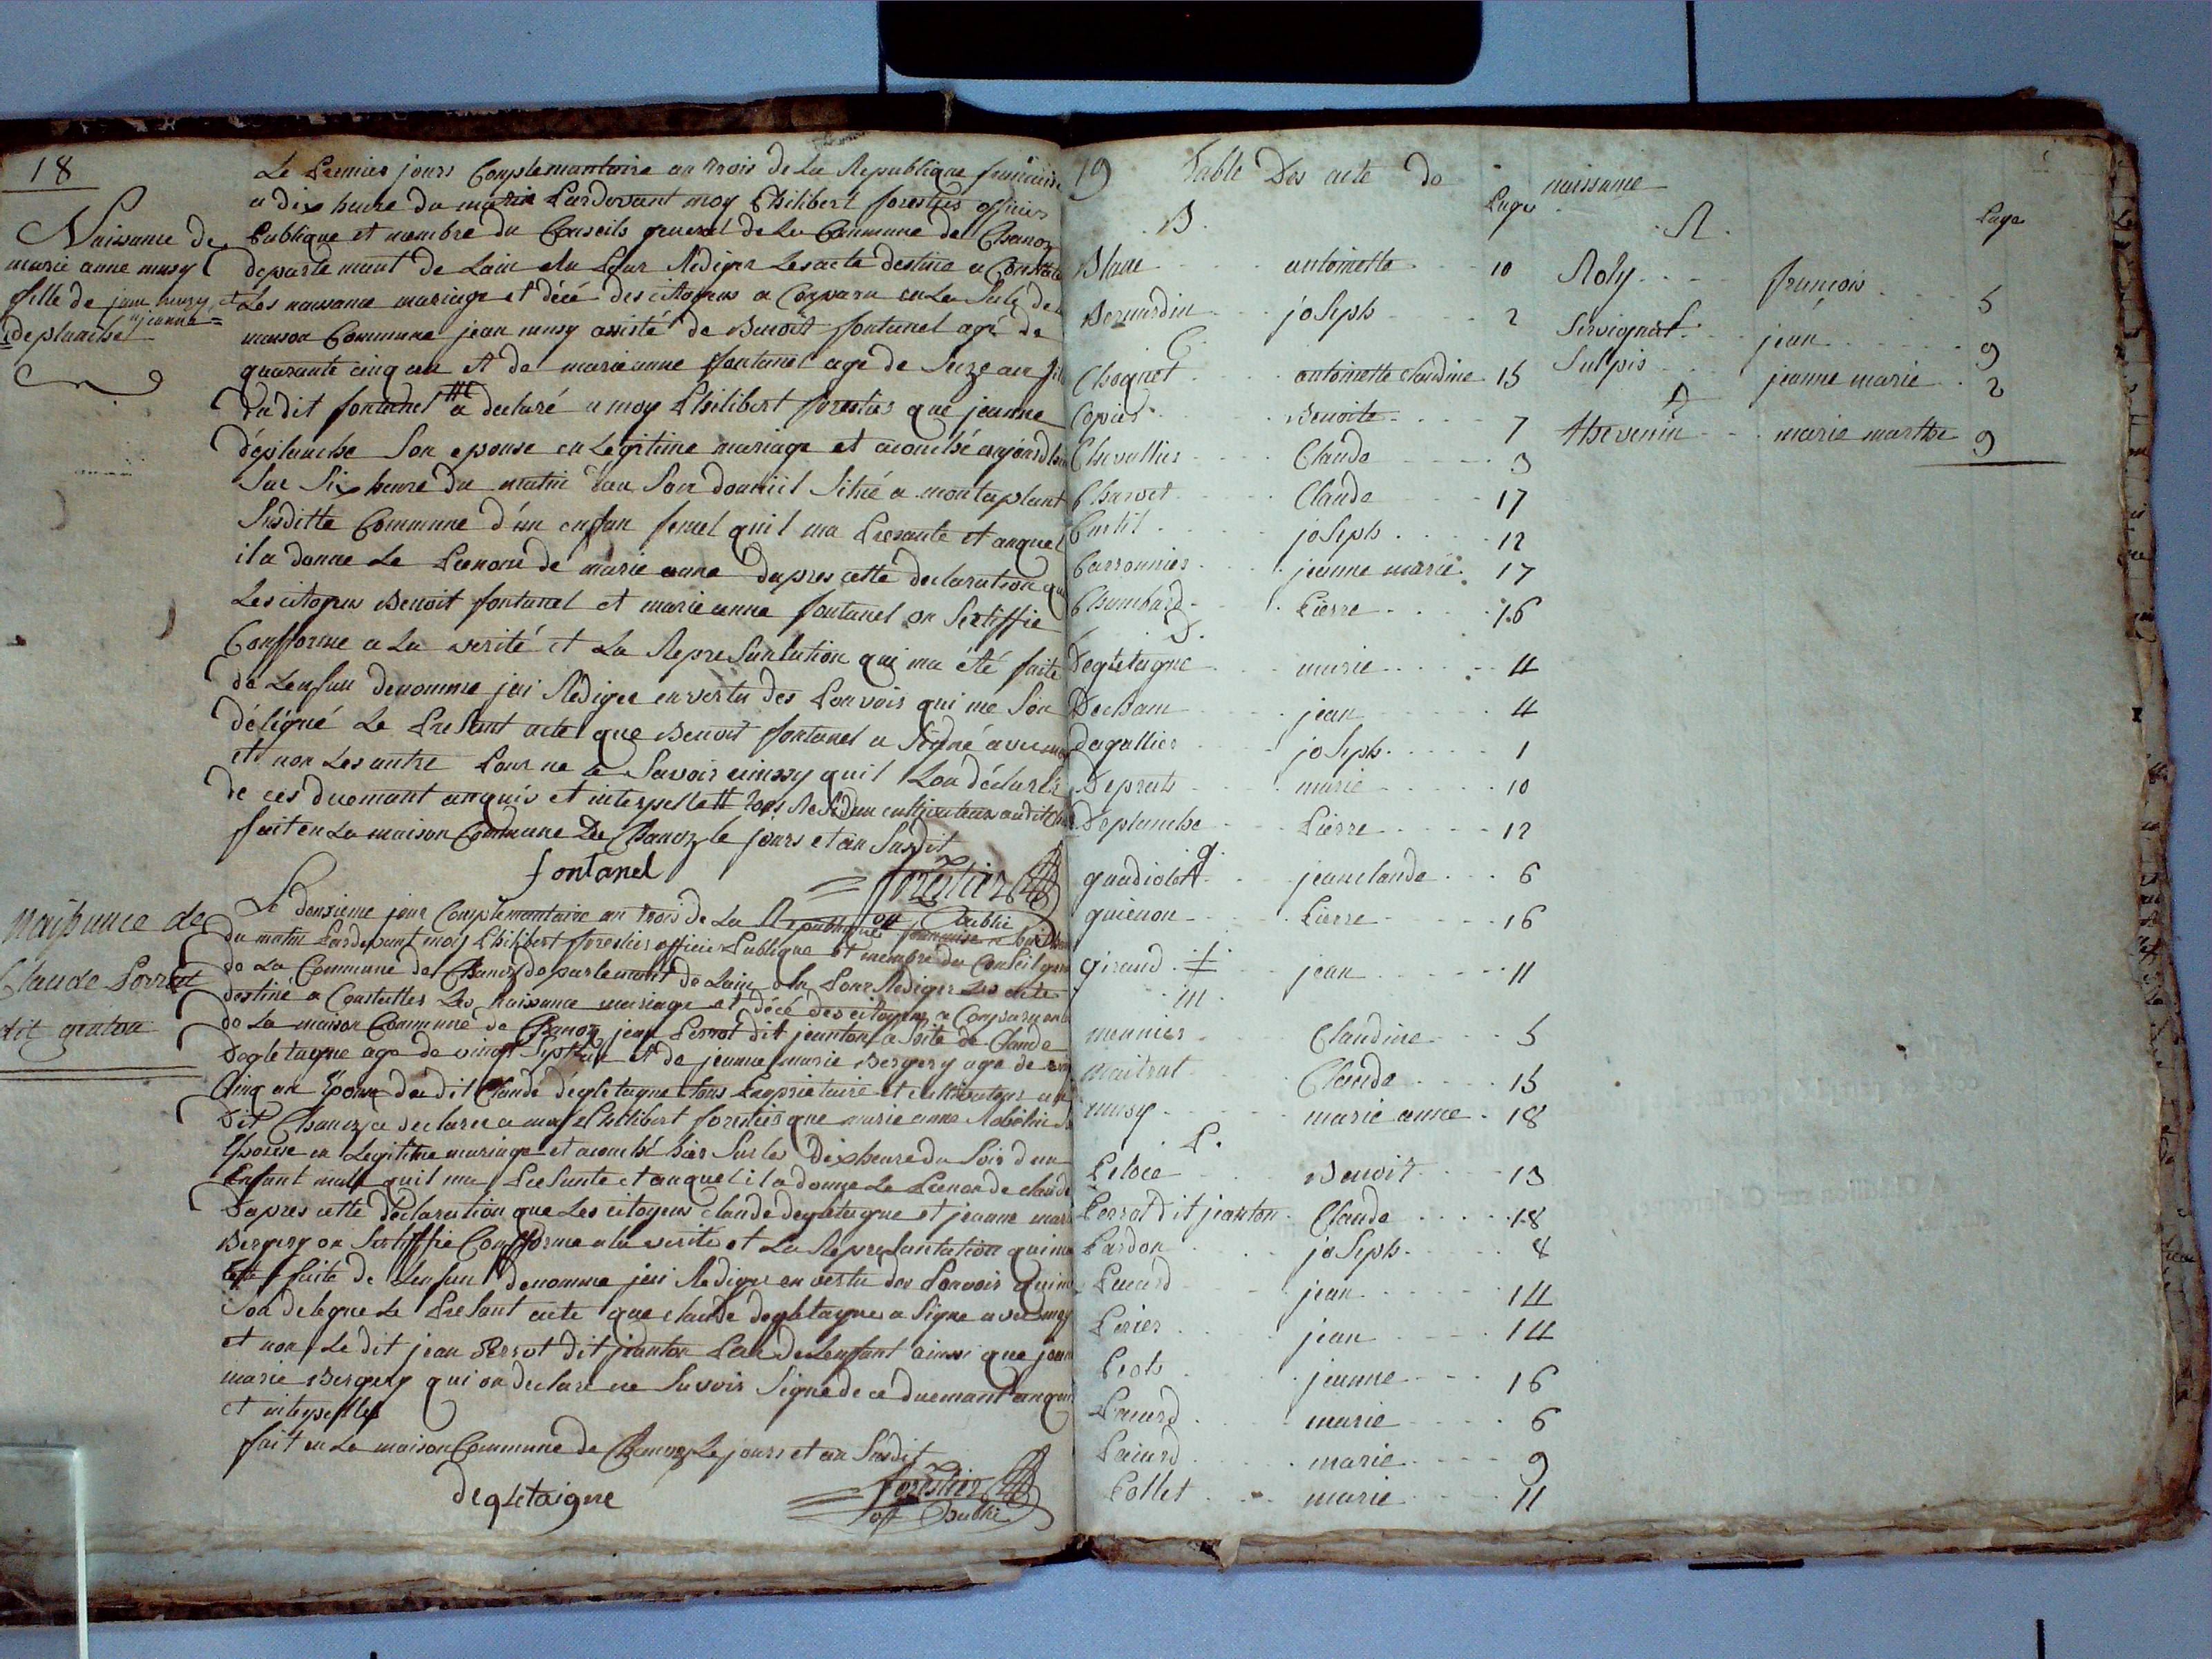 18
Naissance de
marie anne musy
fille de jean musy et
jeanne =
=deplanche
Le Premier jours Complemantaire an trois de La Republique francaise
a dix heure du matin Pardevant moy Philibert forestier officier
Publique et membre du Conseils general de La Commune de Chanoz
departemant de Lain elu Pour Rediger Les acte destine a Constater
Les naissance mariage et décé des citoyens a Comparu en La Sale de la
maison Commune jean musy assisté de Benoît fontanel agé de
quarante cinq an et de marieanne fontanel age de Seize an fille
du dit fontanel a declaré a moy Philibert forestier que jeanne
déplanche Son epouse en Legitime mariage et acouché aujourdhui
Sur Six heure du matin dan Son domicil Situé a montaplant
Susditte Commune d'un enfan femel quil ma Presanté et auquel
il a donne Le Prenome de marie anne dapres cette declaration que
Les citoyens Benoit fontanel et marieanne fontanel on Sertiffie
Confforme a La verité et La RepreSantation qui ma été faite
de Lenfan denomme jai Rédigee en vertu des Pouvoir qui me Son
déligué Le PreSant acte que Benoit fontanel a Signé avec moy
et non Les autre Pour ne le Savoir ainssy quil Lon déclaré
de ces duemant anquis et interpellé tous Residan cultivateur audit Chanoz
fait en La maison Commune De Chanoz le jours et an Susdit
fontanel
forestier
off Public
Naissance de
Claude Perrot
dit janton
Le deusieme jour Complemantaire an trois de La Republique francaise a huit heure
du matin Pardevant moy Philibert forestier officier Publique et membre du Conseil general
de La Commune de Chanoz departemant de Lain elu Pour Rediger Les acte
destiné a Constatter Les Naissance mariage et décé des citoyens a Comparu en la
de La maison Commune de Chanoz jean Perrot dit jeanton a Suite de Claude
degletagne age de vingt Sept an et de jeanne marie Bergery age de vingt
Cinq an Epouse du dit Claude degletagne tous Proprietaire et cultivateur au
Dit Chanoz a declaree a moy Philibert forestier que marie anne Robelin Son
Epouse en Legitime mariage et acouché hier Sur les Dix heure du Soir d'un
Enfant mall quil ma PreSante et auquel il a donne Le Prenon de claude
Dapres cette déclaration que Les citoyens claude degletagne et jeanne marie
Bergery on Sertiffie Confforme a la verité et La RepreSantation qui ma
été faite de Lenfan denomme jai Redigee en vertu des Pouvoir qui me
Son delegue Le PreSant acte que claude degletagne a Signe avec moy
et non Le dit jean Perrot dit jeanton Pere de Lenfant ainsi que jeanne
marie Bergery qui on declare ne Savoir Signe de ce duemant anquis
et interpelles
fait en La maison Commune de Chanoz Le jours et an Susdit
degletaigne
forestier
off Public
19 Table Des acte de naissance
B. Page
Blanc antoinette 10
Bernardin joSeph 2
C.
Chognet antoinette claudine 15
Copier Benoite 7
Chevallier Claude 3
Charvet Claude 17
Curtil joSeph 12
Carronnier jeanne marie 17
Chambard Pierre 16
D.
Degletagne marie 4
Decham jean 4
Dagallier joSeph 1
Deprats marie 10
Deplanche Pierre 12
g.
gaudiolet jeanclaude 6
guienon Pierre 16
giraud jean 11
m
meunier Claudine 5
maitrat Claude 15
musy marie anne 18
P.
Peloce Benoit 13
Perrot dit jeanton Claude 18
Pardon joSeph 8
Pauard jean 14
Perier jean 14
Prots jeanne 16
Pauard marie 6
Pauard marie 9
Pollet marie 11
R. Page
Roly françois 5
Servignat jean 9
Sulpis jeanne marie 2
T
thevenin marie marthe 9